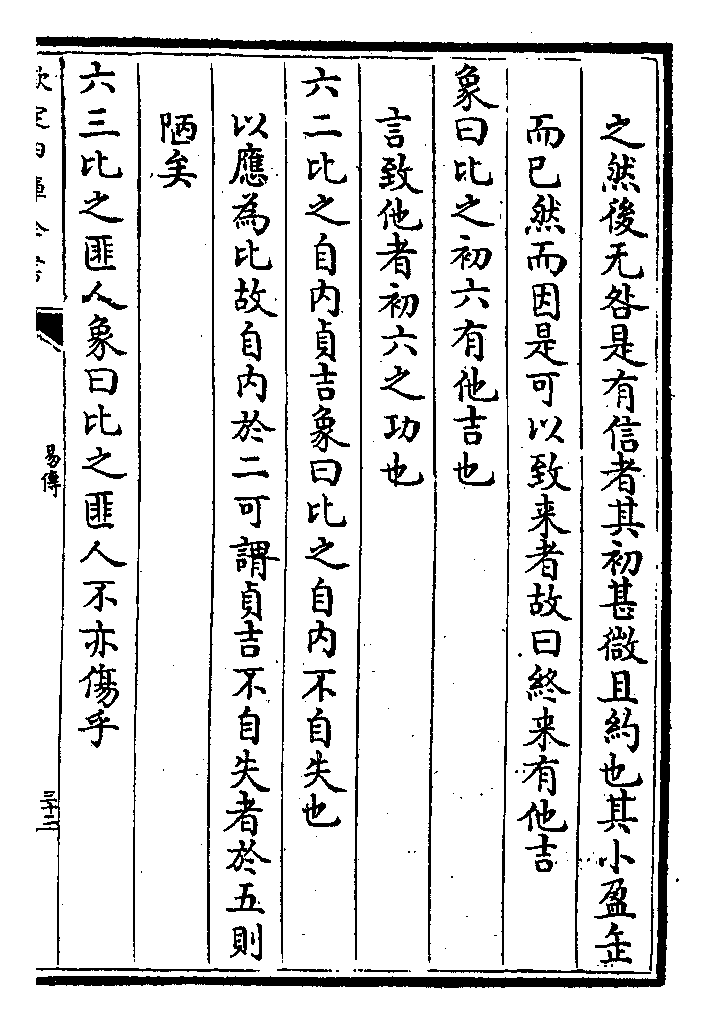 之然後无咎是有信者其初甚微且約也其小盈缶
而已然而因是可以致来者故曰終来有他吉
象曰比之初六有他吉也
言致他者初六之功也
六二比之自内貞吉象曰比之自内不自失也
以應為比故自内於二可謂貞吉不自失者於五則
陋矣
六三比之匪人象曰比之匪人不亦傷乎
易傳
三十三